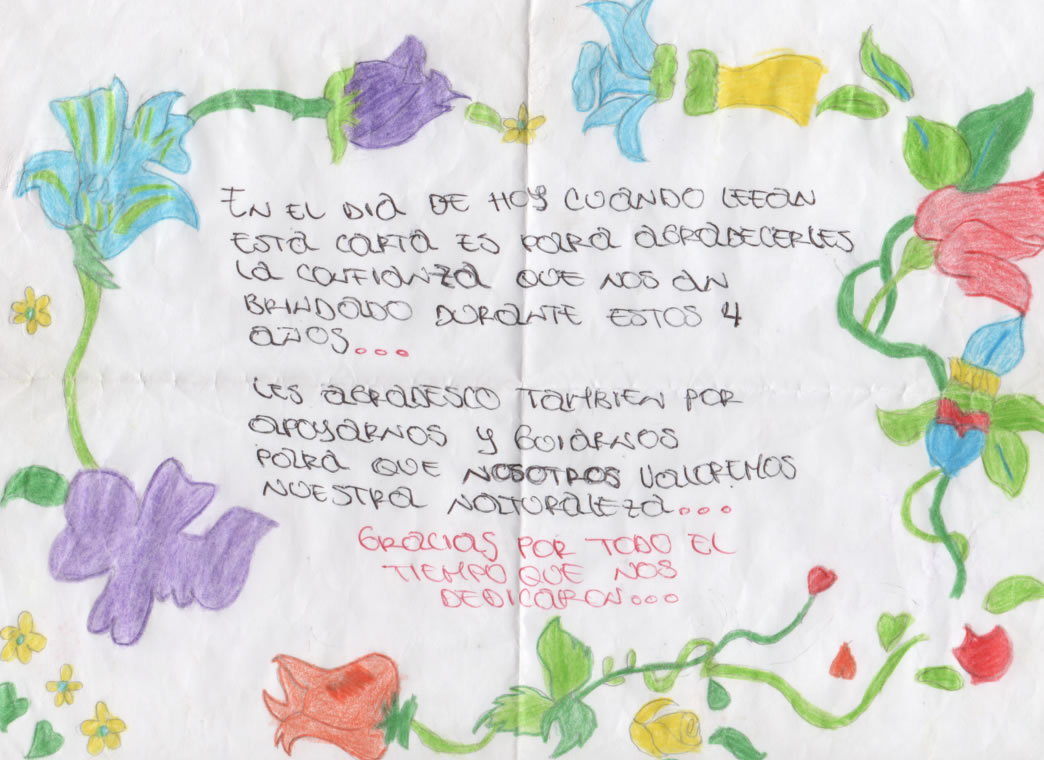 EN EL DIA DE HOY CUANDO LEEAN
ESTA CARTA ES PARA AGRADECERLES
LA CONFIANZA QUE NOS AN
BRINDADO DURANTE ESTOS 4
AÑOS...
LES AGRADESCO TAMBIEN POR
APOYARNOS Y GUIARNOS
PARA QUE NOSOTROS VALOREMOS
NUESTRA NATURALEZA...
GRACIAS POR TODO EL
TIEMPO QUE NOS
DEDICARON...